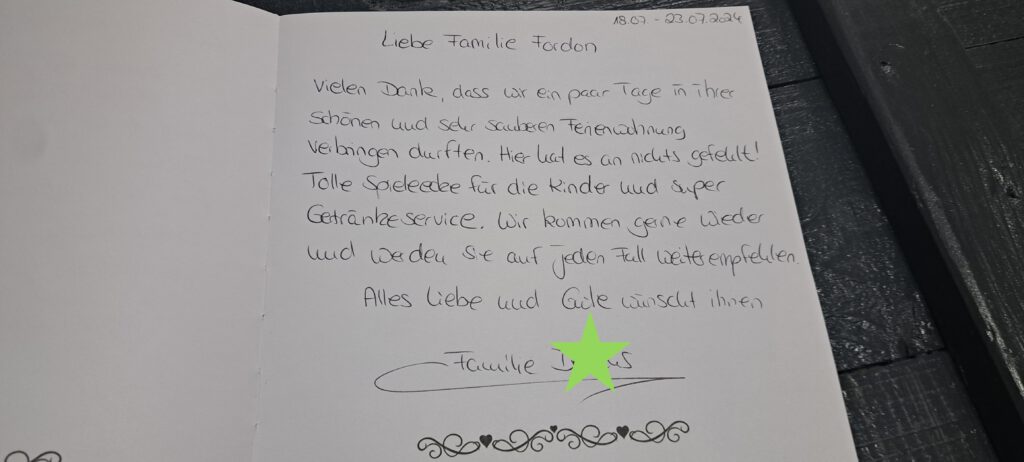 18.07. - 23.07.2024
Liebe Familie Fordon
Vielen Dank, dass wir ein paar Tage in ihrer
schönen und sehr sauberen Ferienwohnung
verbringen durften. Hier hat es an nichts gefehlt!
Tolle Spieleecke für die Kinder und super
Getränkeservice. Wir kommen gerne wieder
und werden Sie auf jeden Fall weiterempfehlen.
Alles Liebe und Gute wünscht ihnen
Familie